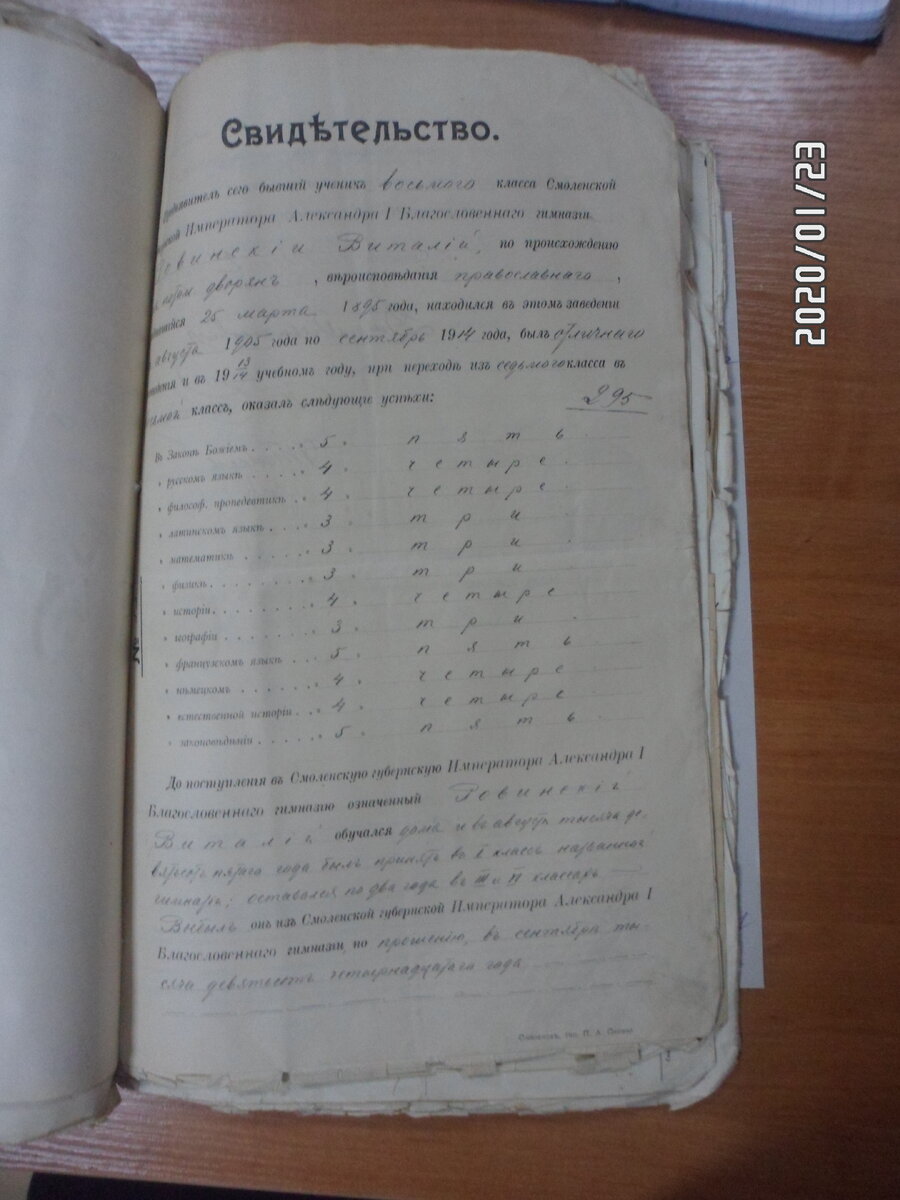 Свидѣтельство.
Предъявитель сего бывшій ученикъ восьмого класса Смоленской
Императора Александра I Благословеннаго гимназіи
Ровинскій Виталій, по происхожденію
дворянъ, вѣроисповѣданія православнаго,
25 марта 1895 года, находился въ этомъ заведеніи
августа 1905 года по сентябрь 1914 года, былъ отличнаго
и въ 19 13/14 учебномъ году, при переходѣ изъ седьмого класса въ
классъ, оказалъ слѣдующіе успѣхи:
295
Въ Законѣ Божіемъ..... 5. пять.
„ русскомъ языкѣ...... 4. четыре.
„ философ. пропедевтикѣ. 4. четыре.
„ латинскомъ языкѣ.... 3. три.
„ математикѣ....... 3. три.
„ физикѣ......... 3. три
„ исторіи......... 4. четыре
„ географіи........ 3. три.
„ французскомъ языкѣ... 5. пять.
„ нѣмецкомъ....... 4. четыре
„ естественной исторіи.. 4. четыре
„ законовѣдѣнія...... 5. пять.
До поступленія въ Смоленскую губернскую Императора Александра I
Благословеннаго гимназію означенный Ровинскій
Виталій обучался дома и въ августѣ тысяча де-
вятьсотъ пятаго года былъ принятъ въ I классъ названной
гимназіи; оставался по два года въ III и VI классахъ
Выбылъ онъ изъ Смоленской губернской Императора Александра I
Благословеннаго гимназіи, по прошенію, въ сентябрѣ ты-
сяча девятьсотъ четырнадцатаго года
Смоленскъ, тип. П. А.
№
2020/01/23